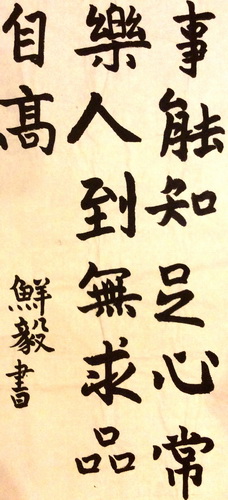 事能知足心常
樂人到無求品
自高
鮮毅書